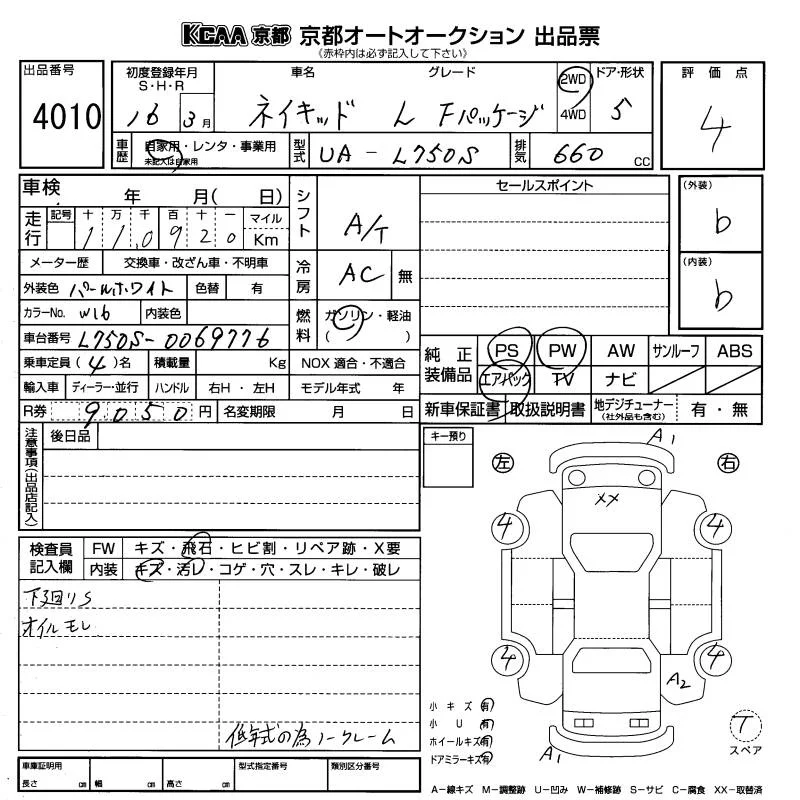 KCAA 京都 京都オートオークション 出品票
《赤枠内は必ず記入して下さい》
出品番号
4010
初度登録年月 車名 グレード 2WD ドア・形状
S・H・R
16 3月 ネイキッド L Fパッケージ 4WD 5
車歴 自家用・レンタ・事業用 型式 UA-L750S 排気 660 CC
未記入は自家用
評価点
4
車検 年 月( 日)
走行 記号 十 万 千 百 十 一 マイル
1 1 0 9 2 0 Km
メーター歴 交換車・改ざん車・不明車
外装色 パールホワイト 色替 有
カラーNo. W16 内装色
車台番号 L750S-0069776
乗車定員 (4)名 積載量 Kg
輸入車 ディーラー・並行 ハンドル 右H・左H
R券 9050 円 名変期限 月 日
シフト A/T
冷房 AC 無
燃料 ガソリン・軽油
( )
NOX 適合・不適合
モデル年式 年
セールスポイント
(外装)
b
(内装)
b
純正装備品 PS PW AW サンルーフ ABS
エアバック TV ナビ
新車保証書 取扱説明書 地デジチューナー 有・無
(社外品も含む)
注意事項(出品店記入)
後日品
キー預り
検査員記入欄 FW キズ・飛石・ヒビ割・リペア跡・X要
内装 キズ・汚レ・コゲ・穴・スレ・キレ・破レ
下廻りS
オイルモレ
低年式の為ノークレーム
左 右
A1
XX
4 4
4 4
A2
A1
小キズ 有
小U 有
ホイールキズ 有
ドアミラーキズ 有
T
スペア
車庫証明用
長さ cm 幅 cm 高さ cm
型式指定番号 類別区分番号
A−線キズ M−調整跡 U−凹み W−補修跡 S−サビ C−腐食 XX−取替済